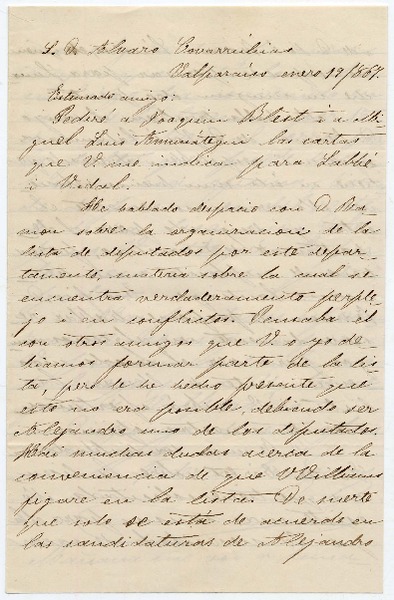 S. D. Alvaro Covarrúbias
Valparaiso enero 19/867.
Estimado amigo:
Pediré a Joaquin Blest i a Mi-
guel Luis Amunátegui las cartas
que V. me indica para Labbé
i Vidal.
He hablado despacio con D. Ra-
mon sobre la organizacion de la
lista de diputados por este depar-
tamento, materia sobre la cual se
encuentra verdaderamente perple-
jo i en conflictos. Pensaba él
con otros amigos que V. o yo de-
biamos formar parte de la lis-
ta, pero le he hecho presente que
esto no era posible, debiendo ser
Alejandro uno de los diputados.
Hai muchas dudas acerca de la
conveniencia de que Williams
figure en la lista. De suerte
que solo se está de acuerdo en
las candidaturas de Alejandro